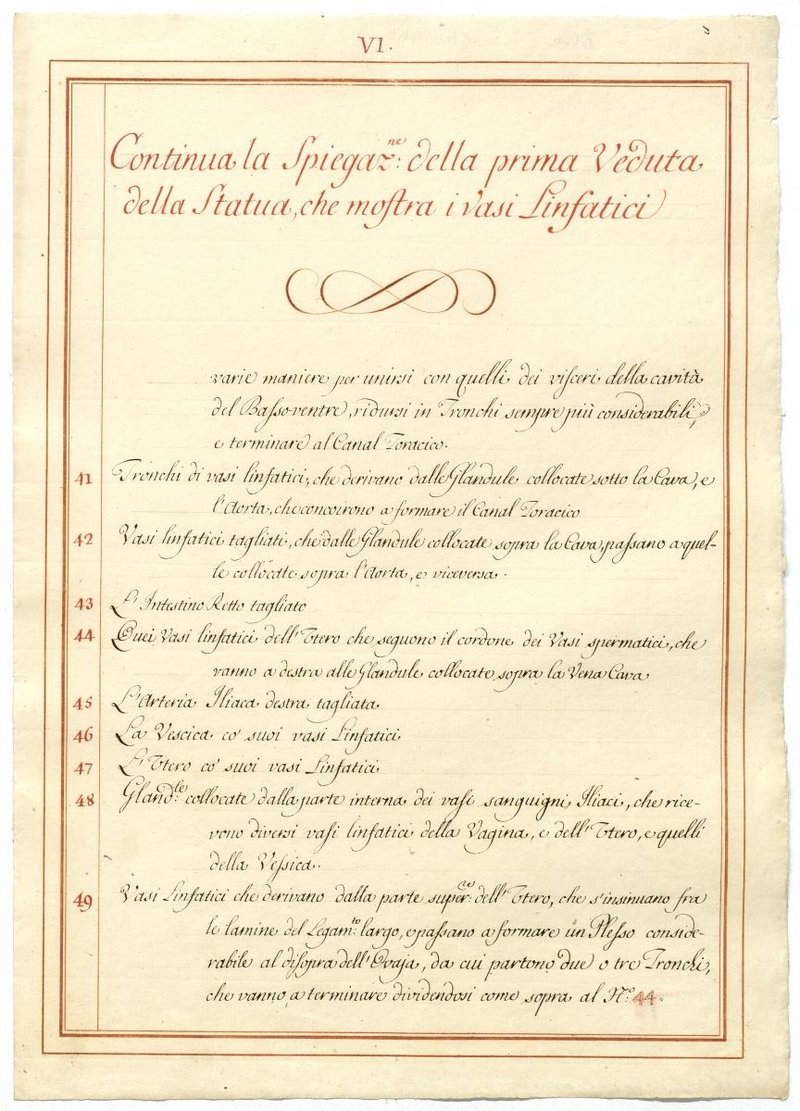 VI.
Continua la Spiegaz.ne della prima Veduta
della Statua, che mostra i vasi Linfatici
varie maniere per unirsi con quelli dei visceri della cavità
del Basso-ventre, ridursi in Tronchi sempre più considerabili,
e terminare al Canal Toracico.
41 Tronchi di vasi linfatici, che derivano dalle Glandule collocate sotto la Cava, e
l'Aorta, che concorrono a formare il Canal Toracico
42 Vasi linfatici tagliati, che dalle Glandule collocate sopra la Cava, passano a quel-
le collocate sopra l'Aorta, e viceversa.
43 L'Intestino Retto tagliato
44 Quei Vasi linfatici dell'Utero che seguono il cordone dei Vasi spermatici, che
vanno a destra alle Glandule collocate sopra la Vena Cava
45 L'Arteria Iliaca destra tagliata
46 La Vescica co' suoi vasi Linfatici
47 L'Utero co' suoi vasi Linfatici
48 Gland.le collocate dalla parte interna dei vasi sanguigni Iliaci, che rice-
vono diversi vasi linfatici della Vagina, e dell'Utero, e quelli
della Vessica.
49 Vasi Linfatici che derivano dalla parte super.re dell'Utero, che s'insinuano fra
le lamine del Legam.to largo, e passano a formare un Plesso conside-
rabile al disopra dell'Ovaja, da cui partono due o tre Tronchi,
che vanno a terminare dividendosi come sopra al N.o 44.